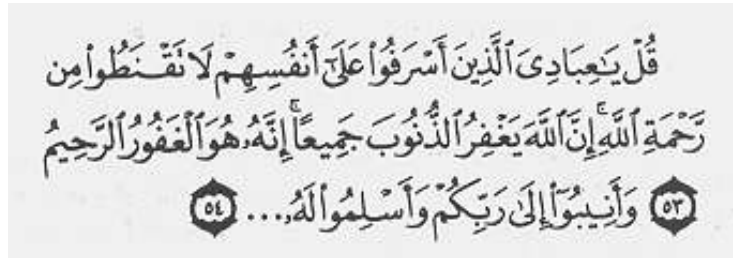 قُلْ يَـٰعِبَادِىَ ٱلَّذِينَ أَسْرَفُوا۟ عَلَىٰٓ أَنفُسِهِمْ لَا تَقْنَطُوا۟ مِن
رَّحْمَةِ ٱللَّهِ ۚ إِنَّ ٱللَّهَ يَغْفِرُ ٱلذُّنُوبَ جَمِيعًا ۚ إِنَّهُۥ هُوَ ٱلْغَفُورُ ٱلرَّحِيمُ
٥٣ وَأَنِيبُوٓا۟ إِلَىٰ رَبِّكُمْ وَأَسْلِمُوا۟ لَهُۥ... ٥٤